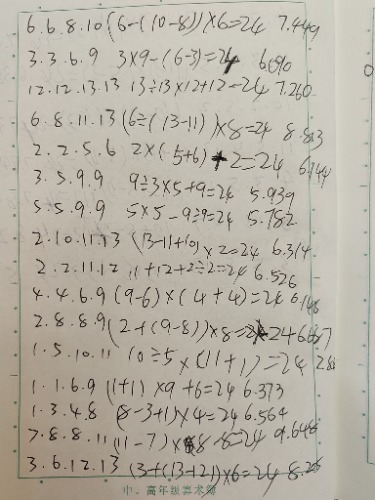 6.6.8.10 (6-(10-8))×6=24 7.449
3.3.6.9 3×9-(6-3)=24 6.090
12.12.13.13 13÷13×12+12=24 7.260
6.8.11.13 (6÷(13-11))×8=24 8.883
2.2.5.6 2×(5+6)+2=24 6.144
3.5.9.9 9÷3×5+9=24 5.939
5.5.9.9 5×5-9÷9=24 5.782
2.10.11.13 (13-11+10)×2=24 6.314
2.2.11.12 11+12+2÷2=24 6.526
4.4.6.9 (9-6)×(4+4)=24 6.148
2.8.8.9 (2+(9-8))×8=24
1.5.10.11 10÷5×(11+1)=24
1.1.6.9 (1+1)×9+6=24 6.373
1.3.4.8 (8-3+1)×4=24 6.564
7.8.8.11 (11-7)×8-8=24 9.648
3.6.12.13 (3+(13-12))×6=24
中、高年级算术簿